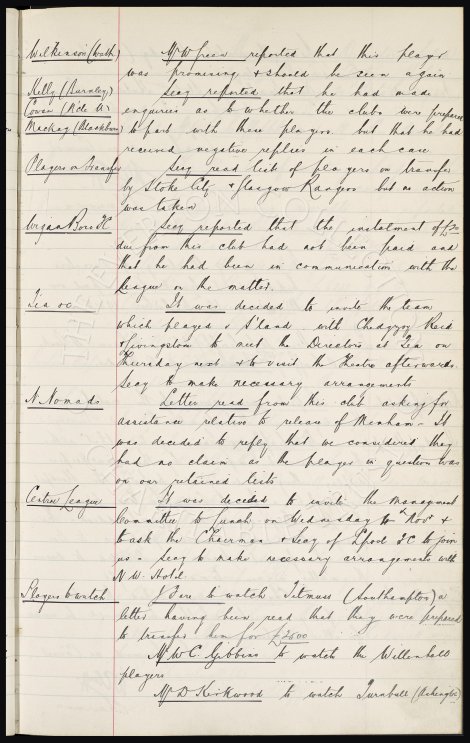 Wilkinson (Wath) Mr W Green reported that this player
was promising & should be seen again
Kelly (Burnley) Secy reported that he had made
Cowan (Kilm.) enquiries as to whether the clubs were prepared
Mackay (Blackburn) to part with these players. but that he had
received negative replies in each case
Players on Transfer Secy read list of players on transfer
by Stoke City & Glasgow Rangers but no action
was taken
Wigan Boro FC Secy reported that the instalment of
due from this club had not been paid and
that he had been in communication with the
League on the matter.
Tea &c It was decided to invite the team
which played v S'land with Chedgzoy Reid
& Livingstone to meet the Directors at Tea on
Thursday next & to visit the Theatre afterwards.
Secy to make necessary arrangements
N. Nomads Letter read from this club asking for
assistance relative to release of Menham. It
was decided to reply that we considered they
had no claim as the player in question was
on our retained list.
Central League It was decided to invite the Management
Committee to lunch on Wednesday Nov &
to ask the Chairman & Secy of Lpool FC to join
us. Secy to make necessary arrangements with
N.W. Hotel.
Players to watch J Fare to watch Titmuss (Southampton) a
letter having been read that they were prepared
to transfer him for £2500
Mr W C Gibbins to watch the Willenhall
players
Mr D Kirkwood to watch Turnbull (Ashington)